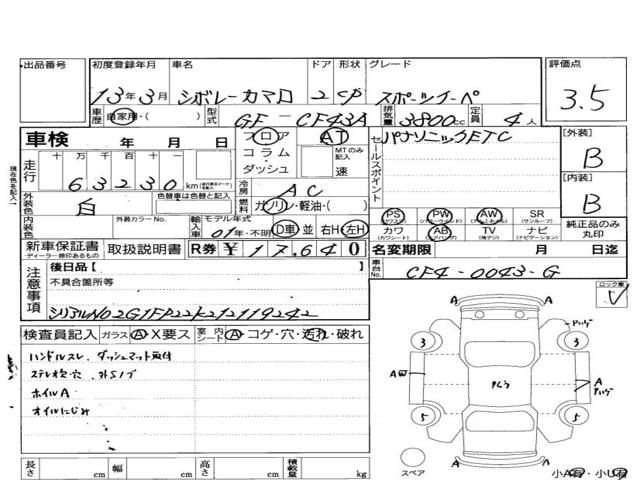 出品番号 初度登録年月 車名 ドア 形状 グレード 評価点
13年3月 シボレーカマロ 2 CP スポーツクーペ 3.5
車歴 自家用・( ) 型式 GF-CF43A 排気量 3800cc 定員 4人
車検 年 月 日 フロア AT セールスポイント パナソニックETC [外装]
コラム・ダッシュ MTのみ記入 速 B
走行 十万 万 千 百 十 km
63230
冷房 AC [内装]
外装色 白 色替車は色替と記入 燃料 ガソリン・軽油・( ) B
PS PW AW SR(サンルーフ)
内装色 外装カラーNo. 輸入車 モデル年式 01年・不明 D車 並 右H 左H カワ(カワシート) AB TV(地デジ) ナビ 純正品のみ丸印
新車保証書 取扱説明書 R券 ¥17,640 名変期限 月 日迄
ディーラー捺印あるもの
注意事項 後日品[ 車台No. CF4-0043-G
不具合箇所等 ロック車
シリアルNo2G1FP22K212119242
検査員記入 ガラス A・X要ス 室内シート A・コゲ・穴・汚れ・破れ
ハンドルスレ、ダッシュマット取付
ステレオ穴・穴、外51フ"
ホイルA
オイルにじみ
A
3 3
AW A
5 5
A
スペア
長さ cm 幅 cm 高さ cm 積載量 kg 小A有・小U有
現在色を記入